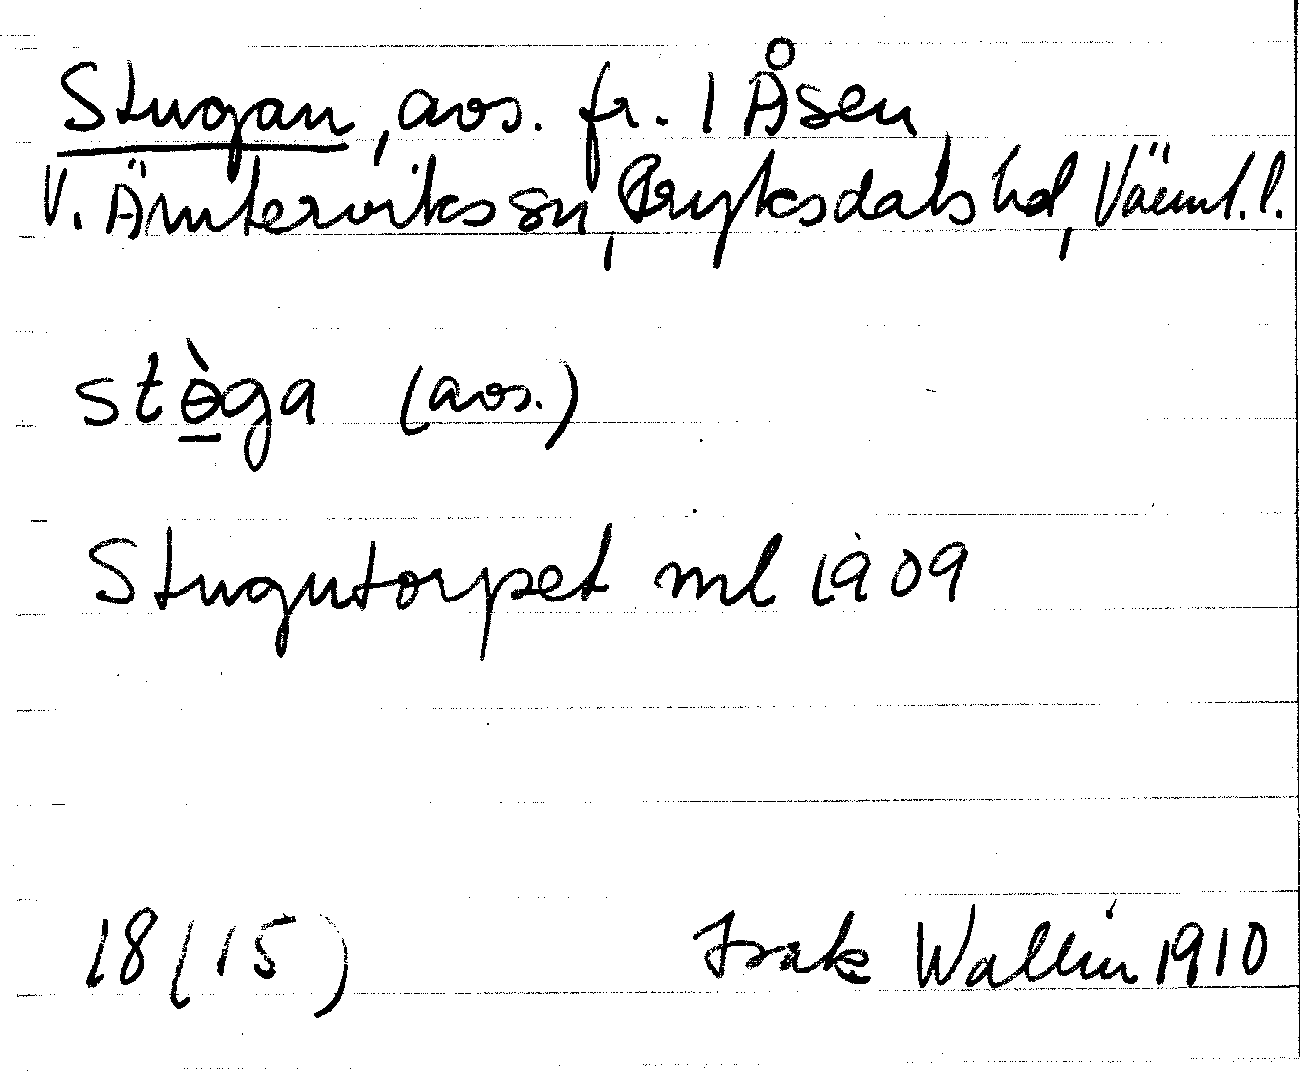 Stugan, avs. fr. 1 Åsen
V. Ämterviks sn, Fryksdals hd, Värml. l.
stɵ̠̀ga (avs.)
Stugutorpet ml 1909
18 (15)
Isak Wallin 1910